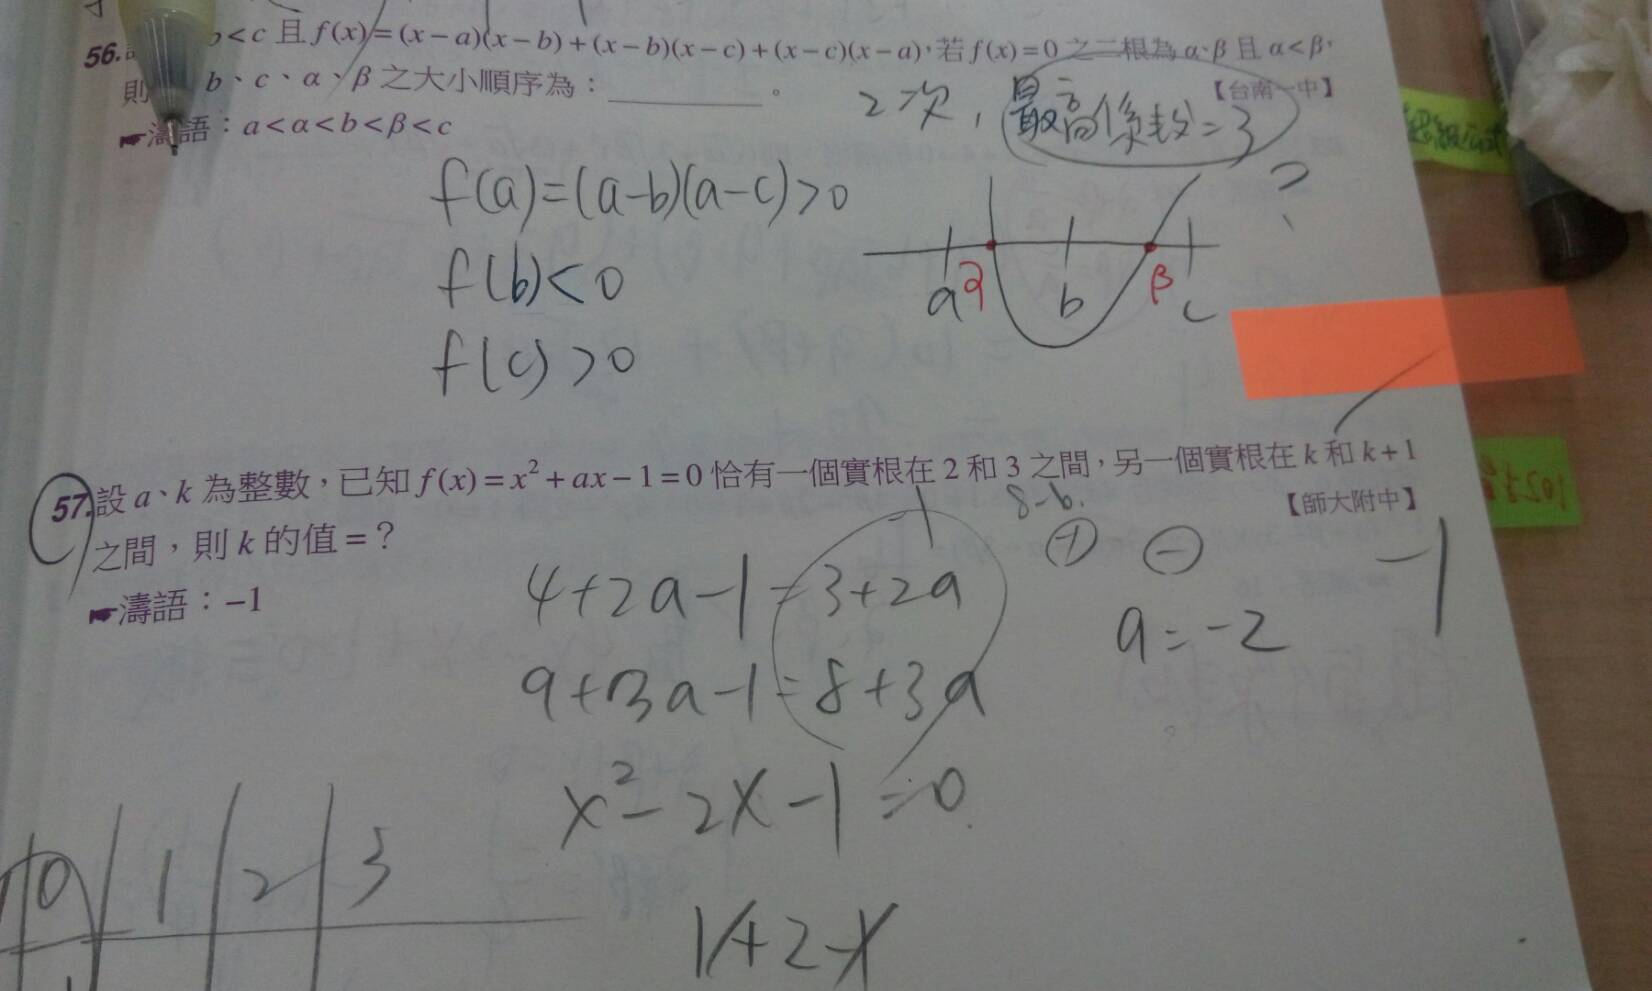 56. b<c 且 f(x)=(x−a)(x−b)+(x−b)(x−c)+(x−c)(x−a)，若 f(x)=0 之二根為 α、β 且 α<β，
則 b、c、α、β 之大小順序為：__________。
【台南一中】
2次，最高係數=3
☛濤語：a<α<b<β<c
f(a)=(a-b)(a-c)>0
?
f(b)<0
a α b β c
f(c)>0
57.設 a、k 為整數，已知 f(x)=x²+ax−1=0 恰有一個實根在 2 和 3 之間，另一個實根在 k 和 k+1
之間，則 k 的值=？
【師大附中】
8-6.
⊕ ⊖
-1
☛濤語：−1
4+2a-1=3+2a
a=-2
9+3a-1=8+3a
x²-2x-1=0
0 1 2 3
1+2-1